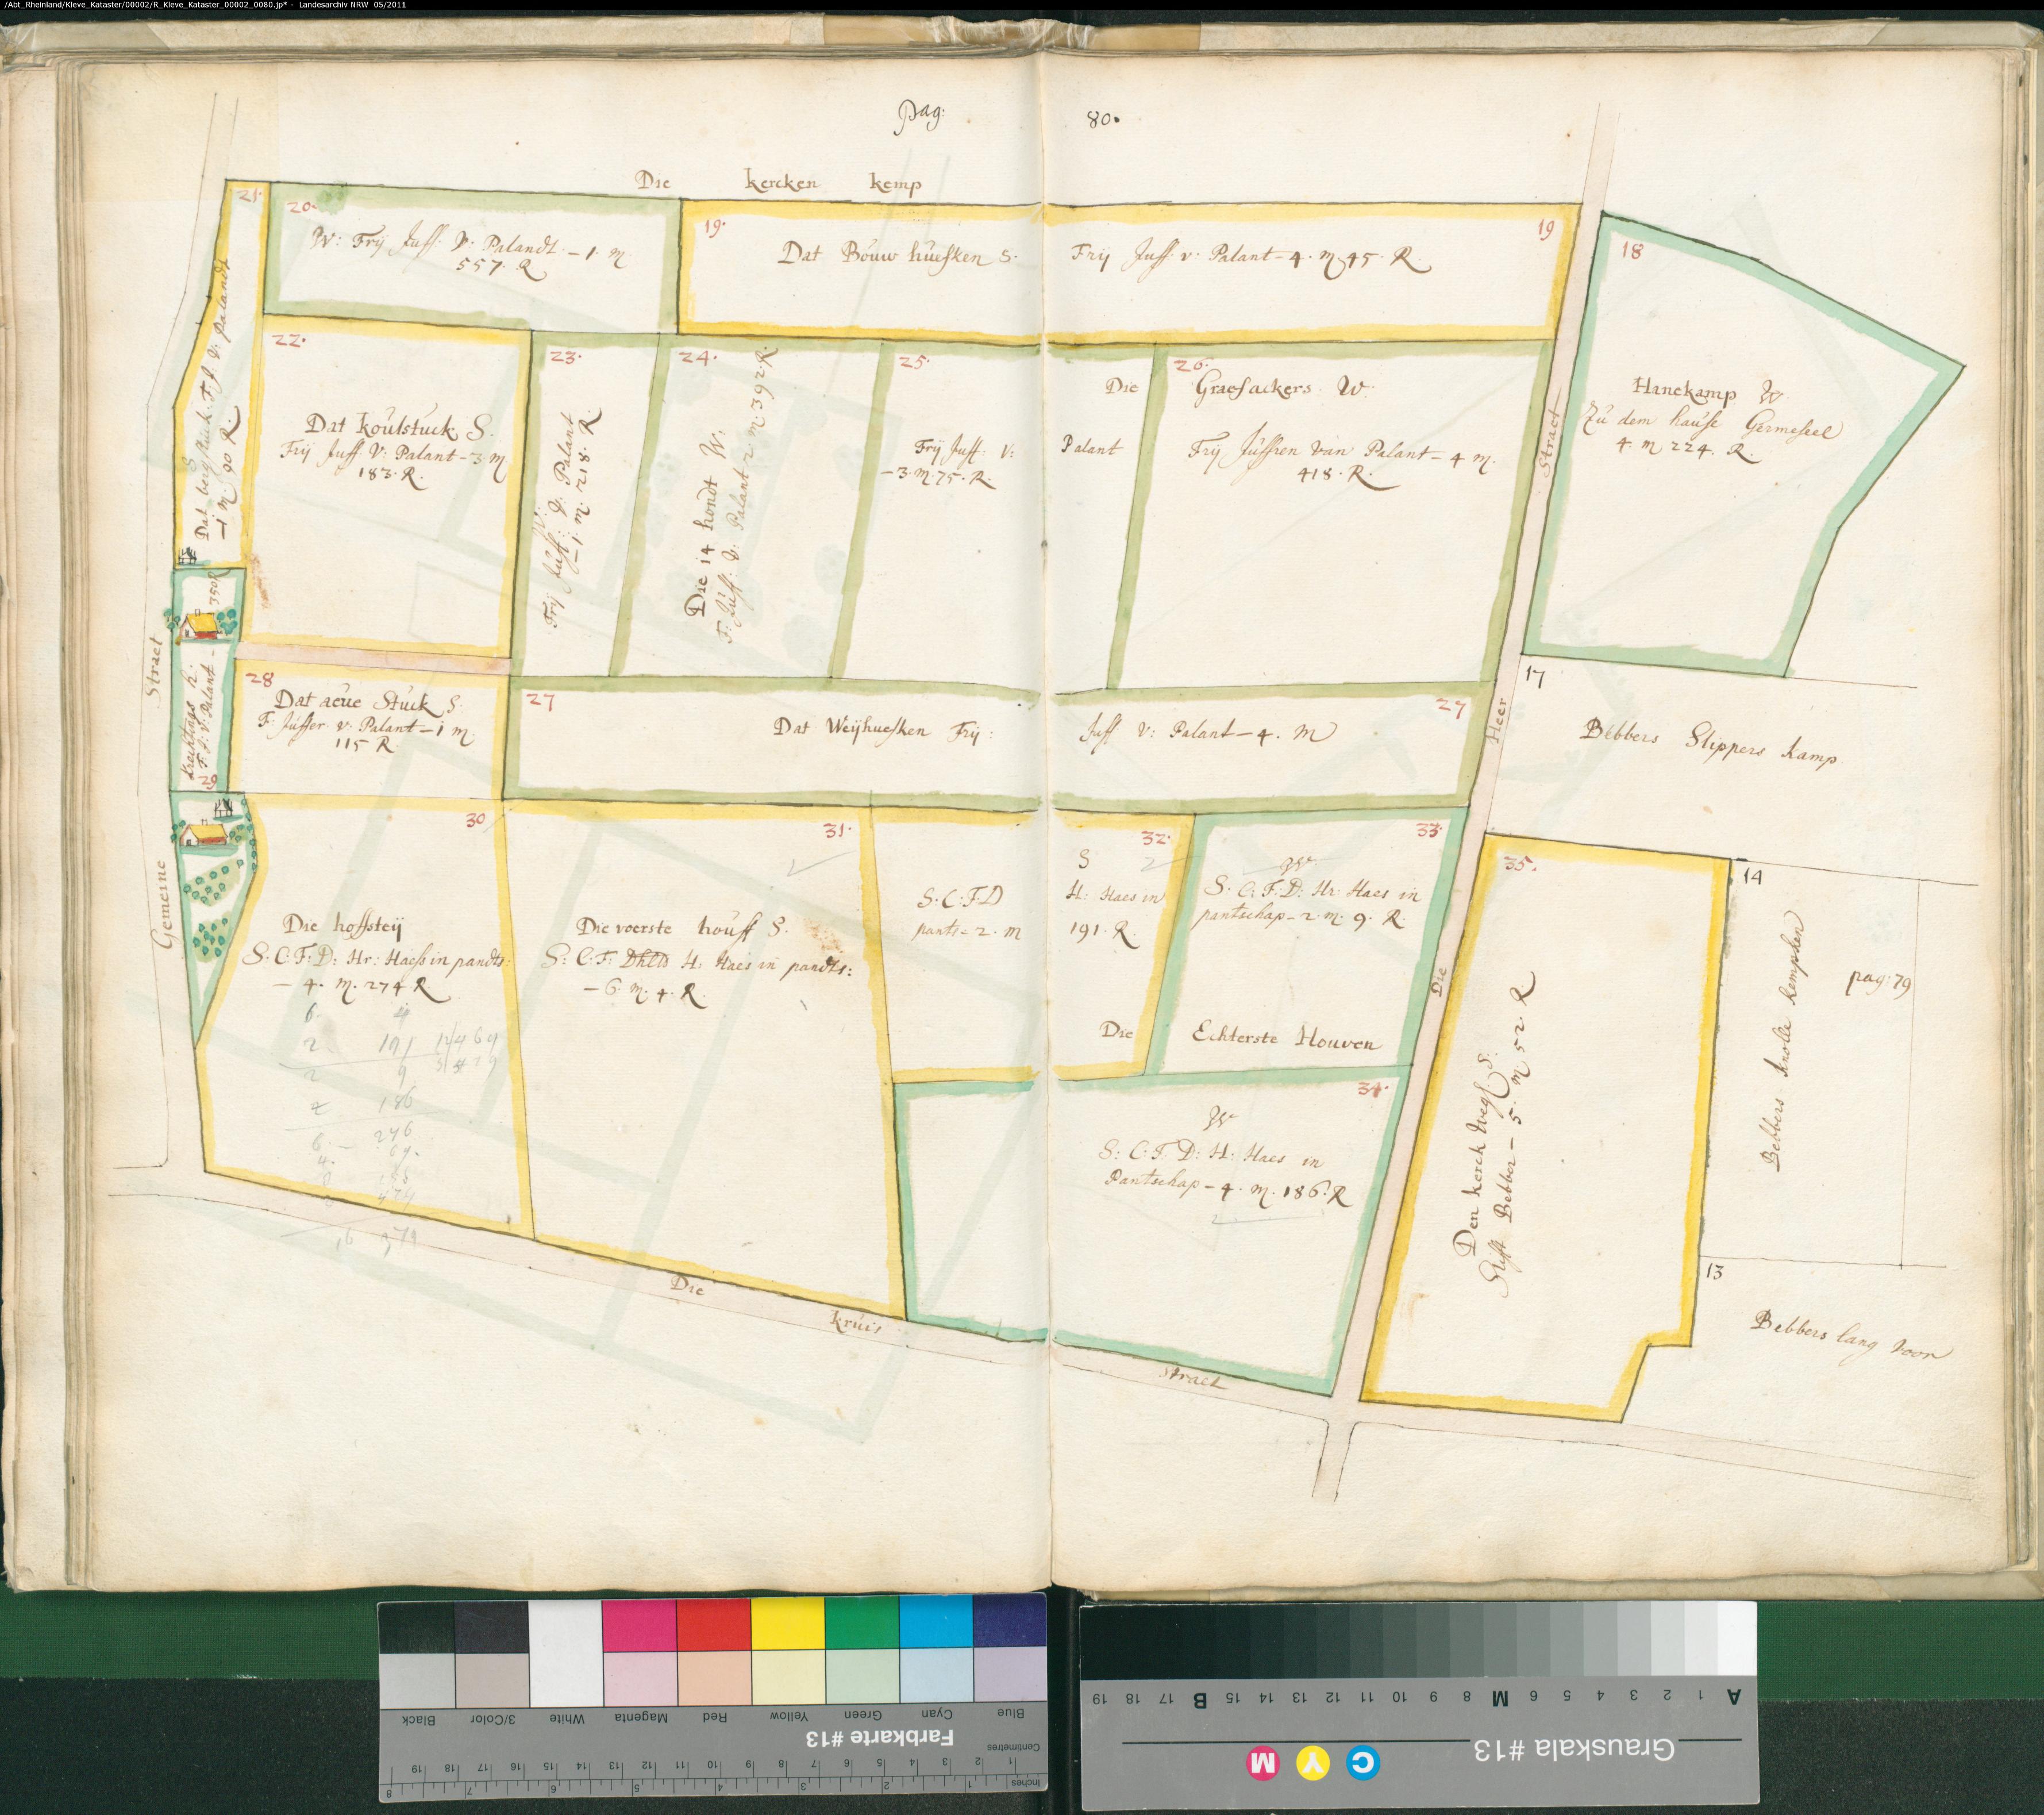 /Abt_Rheinland/Kleve_Kataster/00002/R_Kleve_Kataster_00002_0080.jp* - Landesarchiv NRW 05/2011
Pag: 80.
Die kercken kemp
21.
Dat berg stuck. F. J. V: Palandt
S
–1 m 90 R.
20.
W: Frij Juff: V: Palandt – 1 m
557. R
19. 19
Dat Bouw huesken S. Frij Juff. v: Palant – 4. m 45. R.
18
Hanekamp W.
Zu dem hause Germeseel
4. m 224. R.
22.
Dat koulstuck S.
Frij Juff. V: Palant – 3. m
183. R.
23.
W:
Frij Juff: V: Palant
–1. m. 218. R.
24.
Die 14 hondt W:
F: Juff: V: Palant 2 m: 392. R.
25.
Die
Frij Juff: V: Palant
– 3. m. 75. R.
26.
Graesackers W.
Frij Juffren van Palant – 4 m.
418. R.
350 R
h:
F: J: V: Palant –
29
28
Dat aeue Stuck S.
F: Juffer v: Palant – 1 m
115 R.
27 27
Dat Weijhuesken Frij: Juff V: Palant – 4. m
17
Bebbers Slippers kamp
Gemeine Straet
30
Die hoffsteij
S. C. F. D: Hr: Haess in pandts:
– 4. m. 274 R
6. 4
2 191
2 9
4 186
6. – 276
31.
Die voerste houff S.
S: C. F: H: Haes in pandts:
– 6. m. 4. R.
32.
S
S. C. F. D H: Haes in
pants – 2. m 191. R.
Die
33.
W
S. C. F. D: Hr: Haes in
pantschap – 2. m. 9. R.
Echterste Houven
34.
W
S: C: F. D: H: Haes in
Pantschap – 4. m. 186. R
35.
Den kerck wegh S:
Stifft Bebber – 5. m 52. R
Die Heer Straet
14
Bebbers knolle kempken
pag: 79
13
Bebbers lang voor
Die kruis straet
Blue Cyan Green Yellow Red Magenta White 3/Color Black
Farbkarte #13
Centimetres
1 2 3 4 5 6 7 8 9 10 11 12 13 14 15 16 17 18 19
Inches
1 2 3 4 5 6 7 8
A 1 2 3 4 5 6 M 8 9 10 11 12 13 14 15 B 17 18 19
Grauskala #13
C Y M